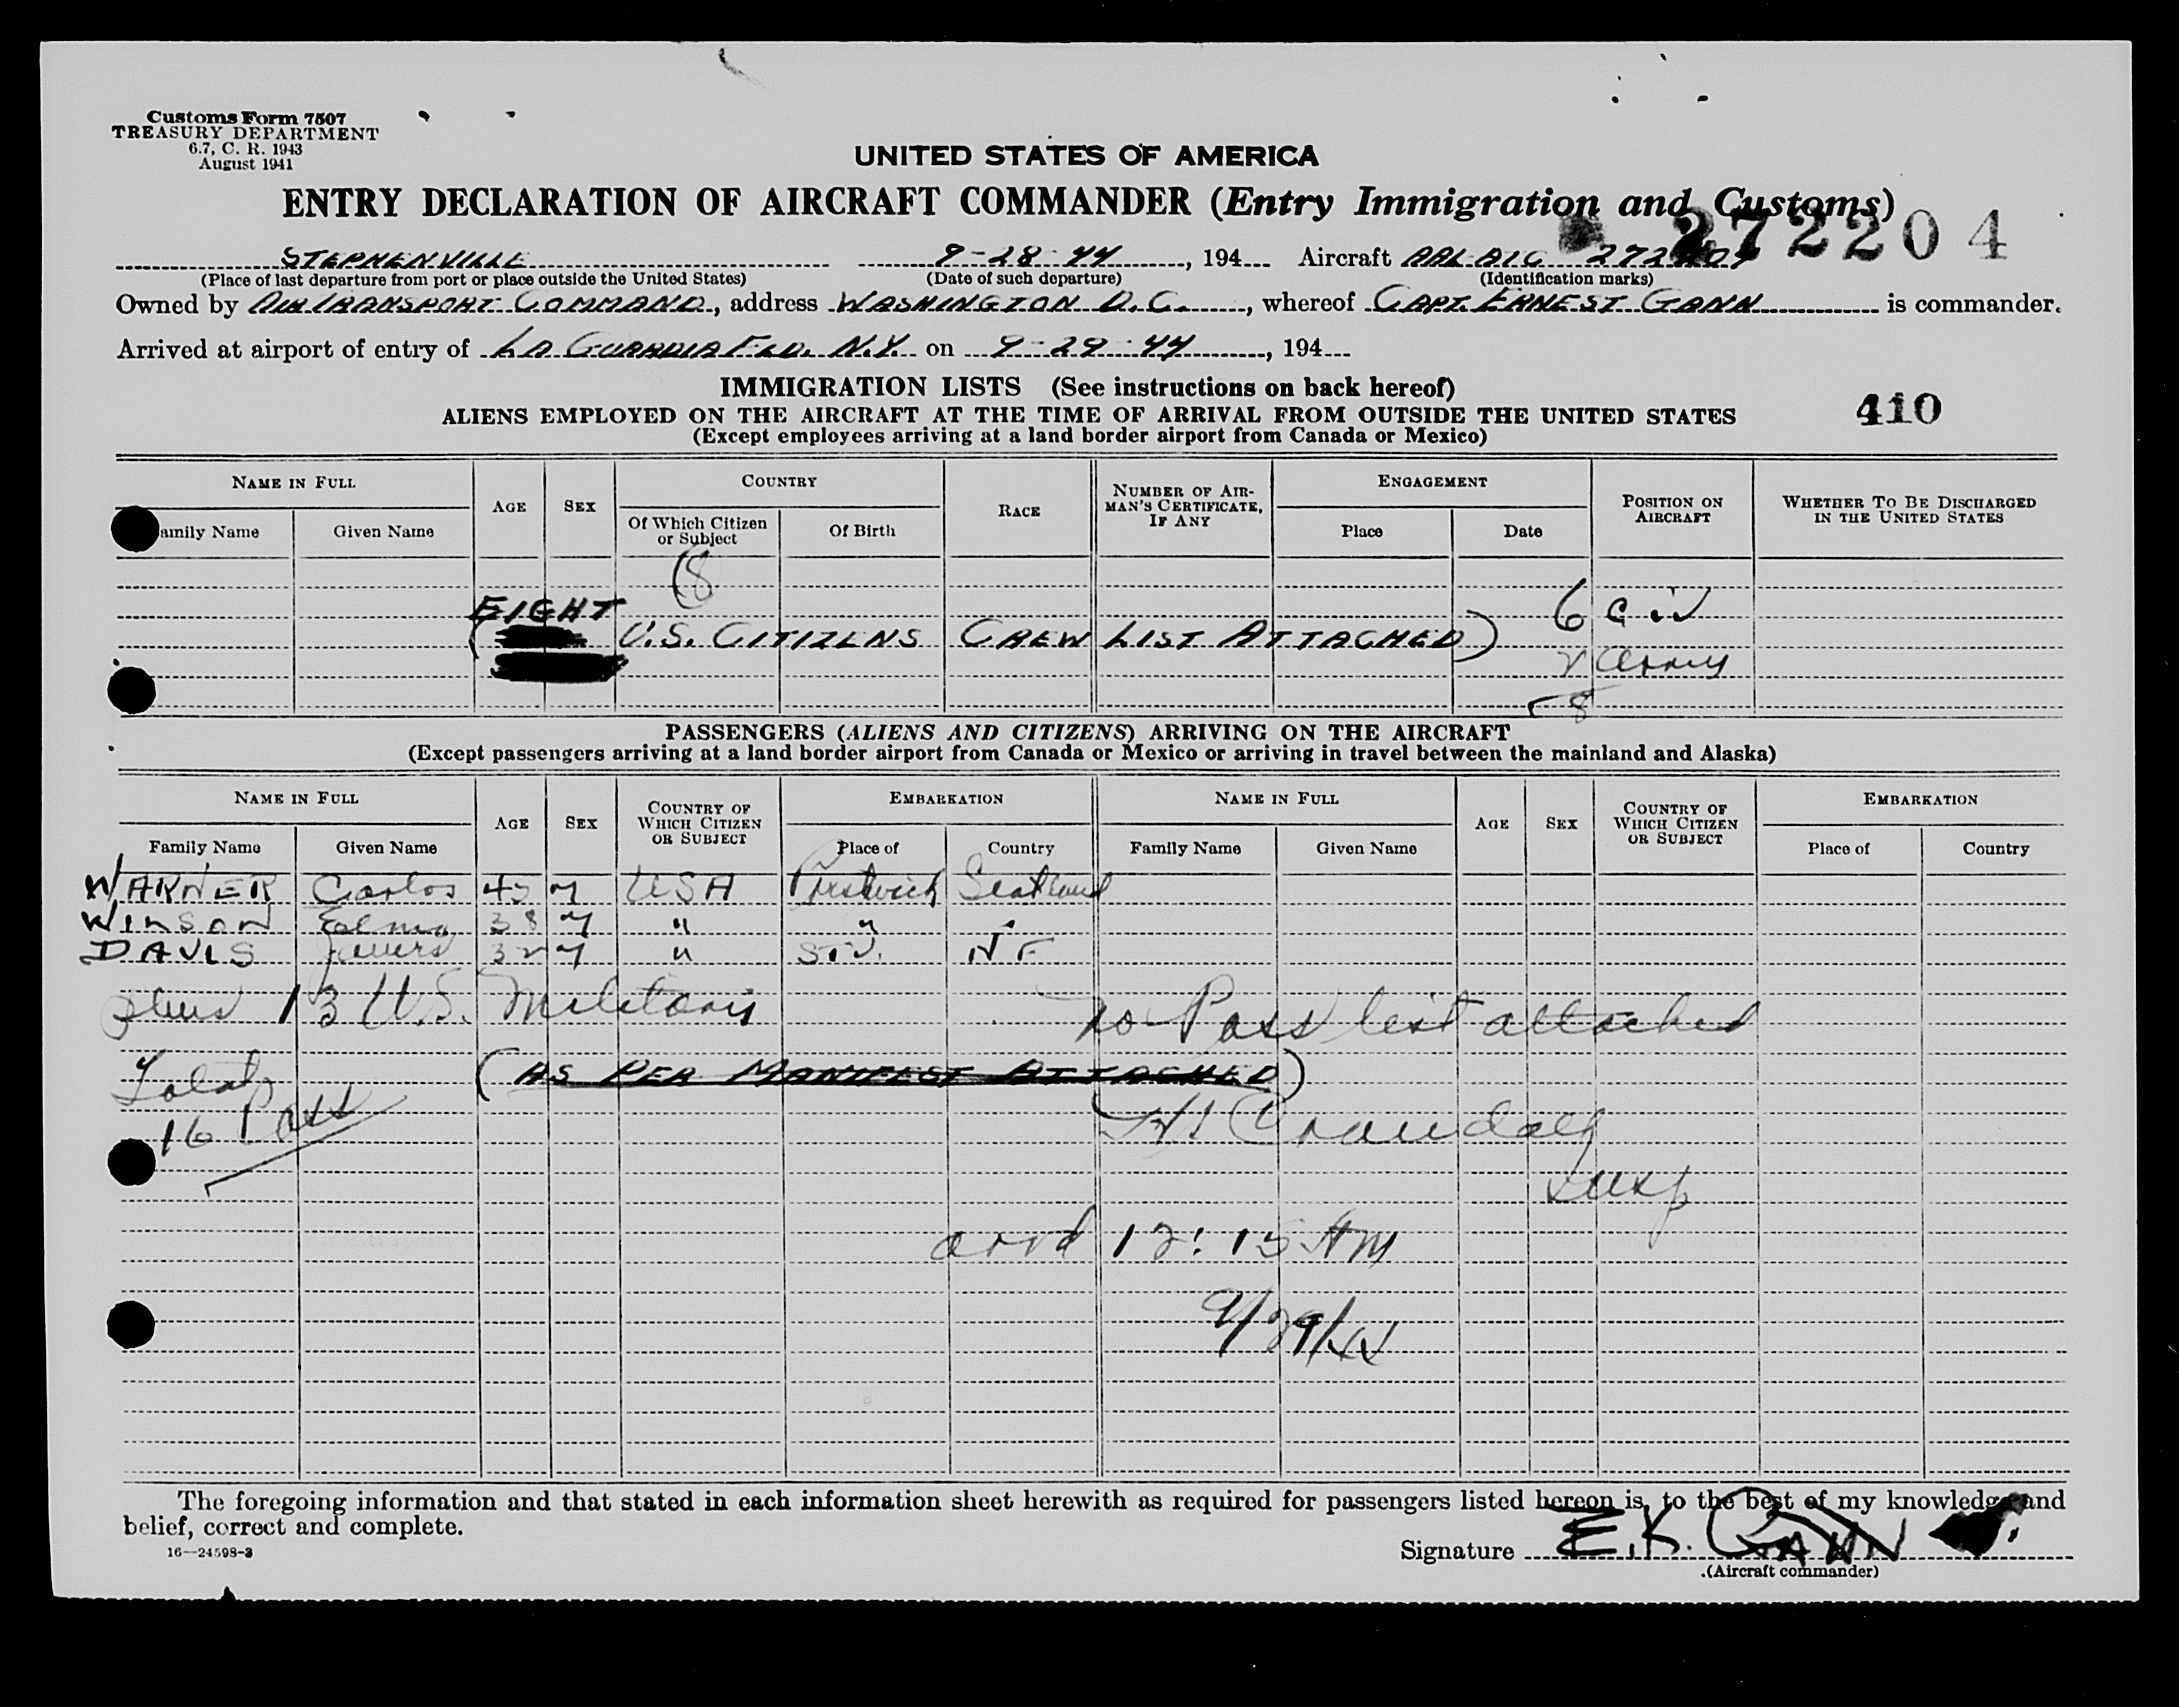 Customs Form 7507
TREASURY DEPARTMENT
6.7, C. R. 1943
August 1941
UNITED STATES OF AMERICA
ENTRY DECLARATION OF AIRCRAFT COMMANDER (Entry Immigration and Customs)
272204
STEPHENVILLE 9-28-44, 194 Aircraft
(Place of last departure from port or place outside the United States) (Date of such departure) (Identification marks)
Owned by AIR TRANSPORT COMMAND, address WASHINGTON D.C., whereof CAPT. ERNEST GANN is commander.
Arrived at airport of entry of LA GUARDIA FLD. N.Y. on 9-29-44, 194
IMMIGRATION LISTS (See instructions on back hereof)
ALIENS EMPLOYED ON THE AIRCRAFT AT THE TIME OF ARRIVAL FROM OUTSIDE THE UNITED STATES 410
(Except employees arriving at a land border airport from Canada or Mexico)
NAME IN FULL AGE SEX COUNTRY RACE NUMBER OF AIRMAN'S CERTIFICATE, IF ANY ENGAGEMENT POSITION ON AIRCRAFT WHETHER TO BE DISCHARGED IN THE UNITED STATES
amily Name Given Name Of Which Citizen or Subject Of Birth Place Date
(8
EIGHT 6 Civ
( U.S. CITIZENS CREW LIST ATTACHED)
2 Army
8
PASSENGERS (ALIENS AND CITIZENS) ARRIVING ON THE AIRCRAFT
(Except passengers arriving at a land border airport from Canada or Mexico or arriving in travel between the mainland and Alaska)
NAME IN FULL AGE SEX COUNTRY OF WHICH CITIZEN OR SUBJECT EMBARKATION NAME IN FULL AGE SEX COUNTRY OF WHICH CITIZEN OR SUBJECT EMBARKATION
Family Name Given Name Place of Country Family Name Given Name Place of Country
WARNER Carlos 45 M USA Prestwick Scotland
WINSON Elmo 38 M " " "
DAVIS 32 M " STV. NF
plus 13 U.S. Military no Pass list attached
Total (AS PER MANIFEST ATTACHED)
16 Pass
Crandall
Insp
arrd 12:15 AM
9/29/44
The foregoing information and that stated in each information sheet herewith as required for passengers listed hereon is, to the best of my knowledge and
belief, correct and complete.
16—24598-3
Signature E.K. GANN
(Aircraft commander)